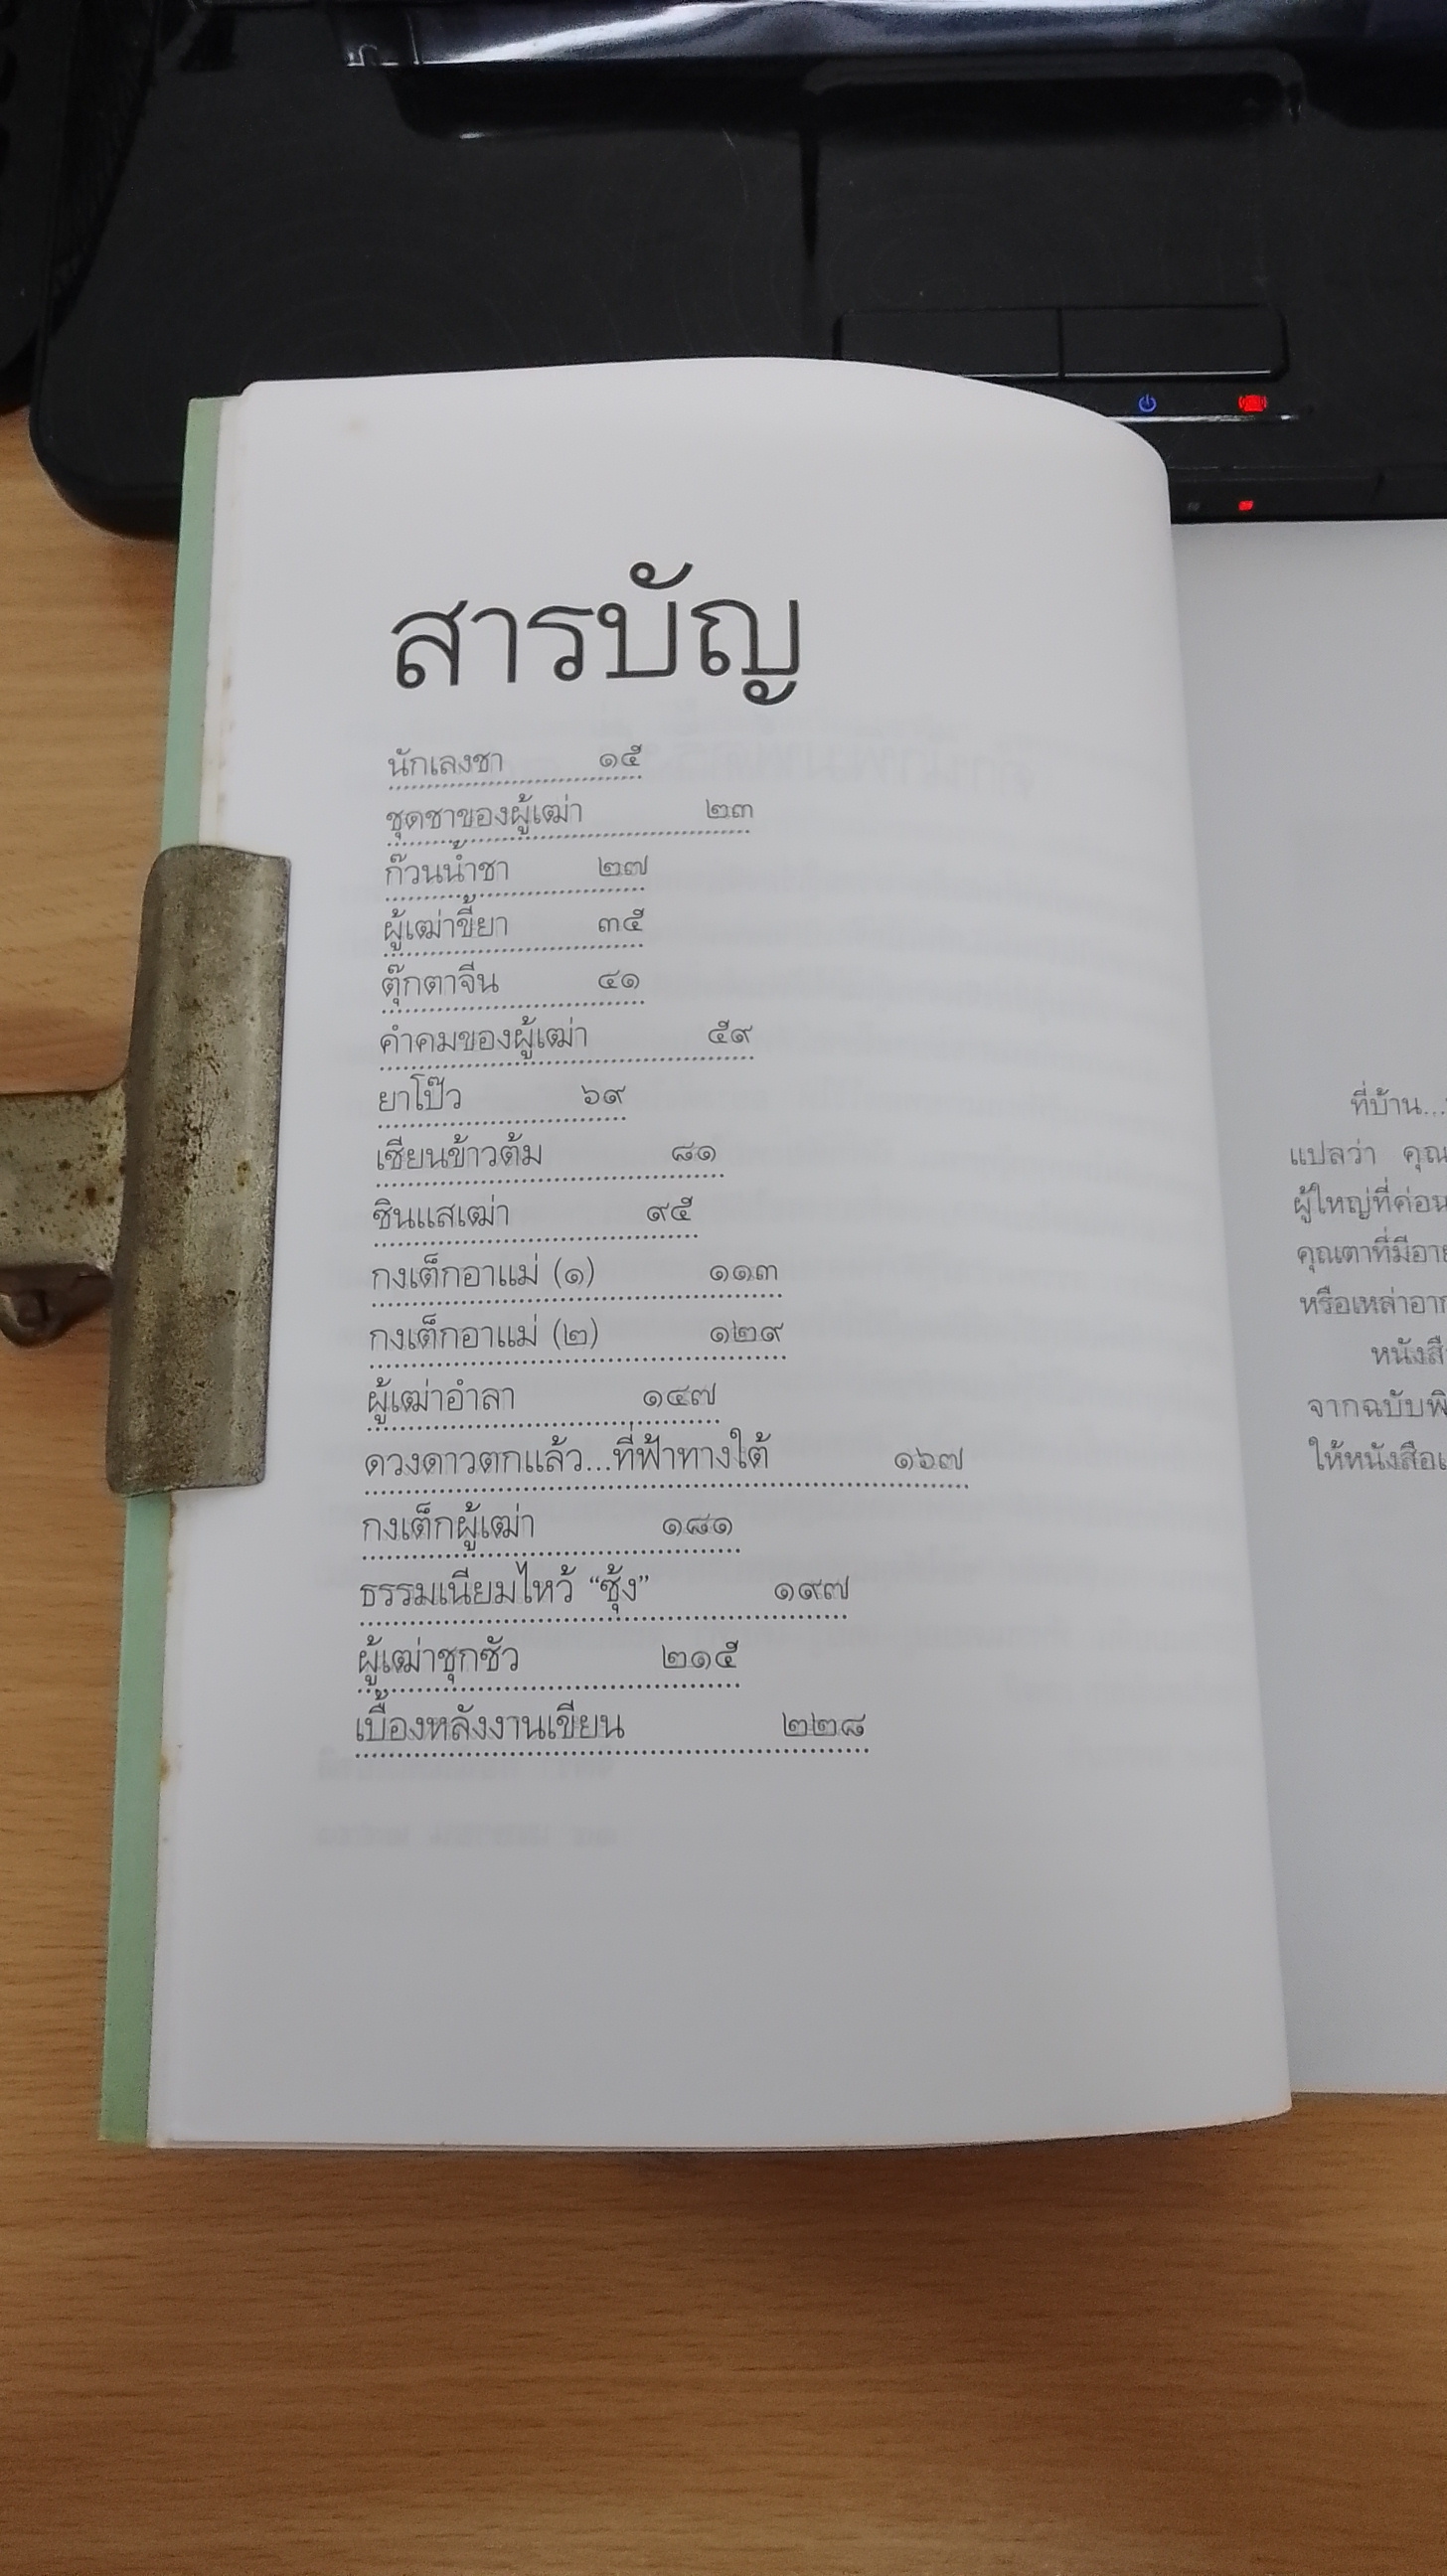 สารบัญ
นักเลงชา ๑๕
ชุดชาของผู้เฒ่า ๒๓
ก๊วนน้ำชา ๒๗
ผู้เฒ่าขี้ยา ๓๕
ตุ๊กตาจีน ๔๑
คำคมของผู้เฒ่า ๕๙
ยาโป๊ว ๖๙
เซียนข้าวต้ม ๘๑
ซินแสเฒ่า ๙๕
กงเต็กอาแม่ (๑) ๑๑๓
กงเต็กอาแม่ (๒) ๑๒๙
ผู้เฒ่าอำลา ๑๔๗
ดวงดาวตกแล้ว...ที่ฟ้าทางใต้ ๑๖๗
กงเต็กผู้เฒ่า ๑๘๑
ธรรมเนียมไหว้ “ซุ้ง” ๑๙๗
ผู้เฒ่าซุกซัว ๒๑๕
เบื้องหลังงานเขียน ๒๒๘
ที่บ้าน...
แปลว่า คุณ
ผู้ใหญ่ที่ค่อน
คุณตาที่มีอา
หรือเหล่าอา
หนังสื
จากฉบับพิ
ให้หนังสือ